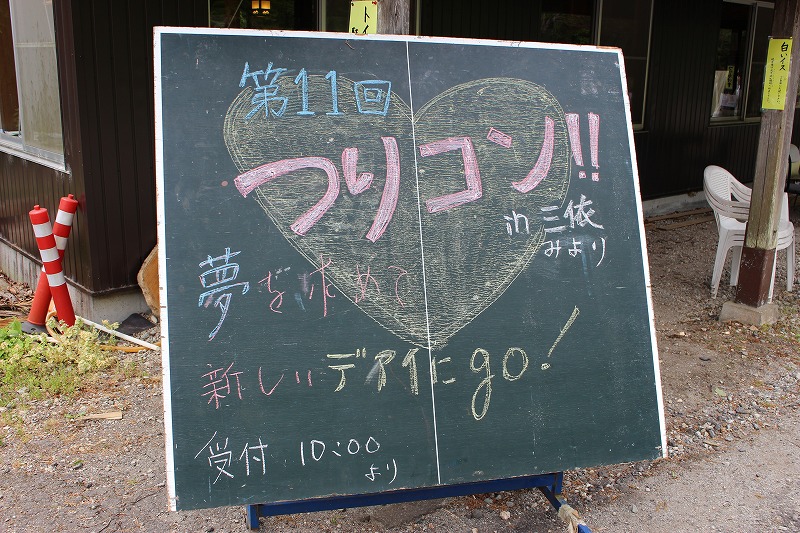 第11回
つりコン!!
in 三依
みより
夢を求めて
新しいデアイにgo!
受付 10:00
より
白いイス